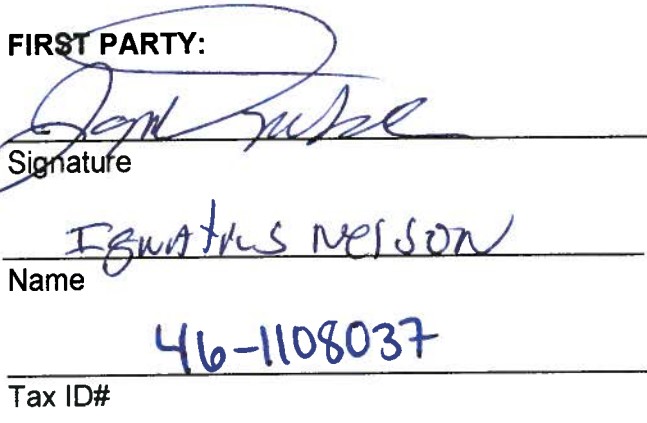 FIRST PARTY:
Signature
Ignatius Nelson
Name
46-1108037
Tax ID#